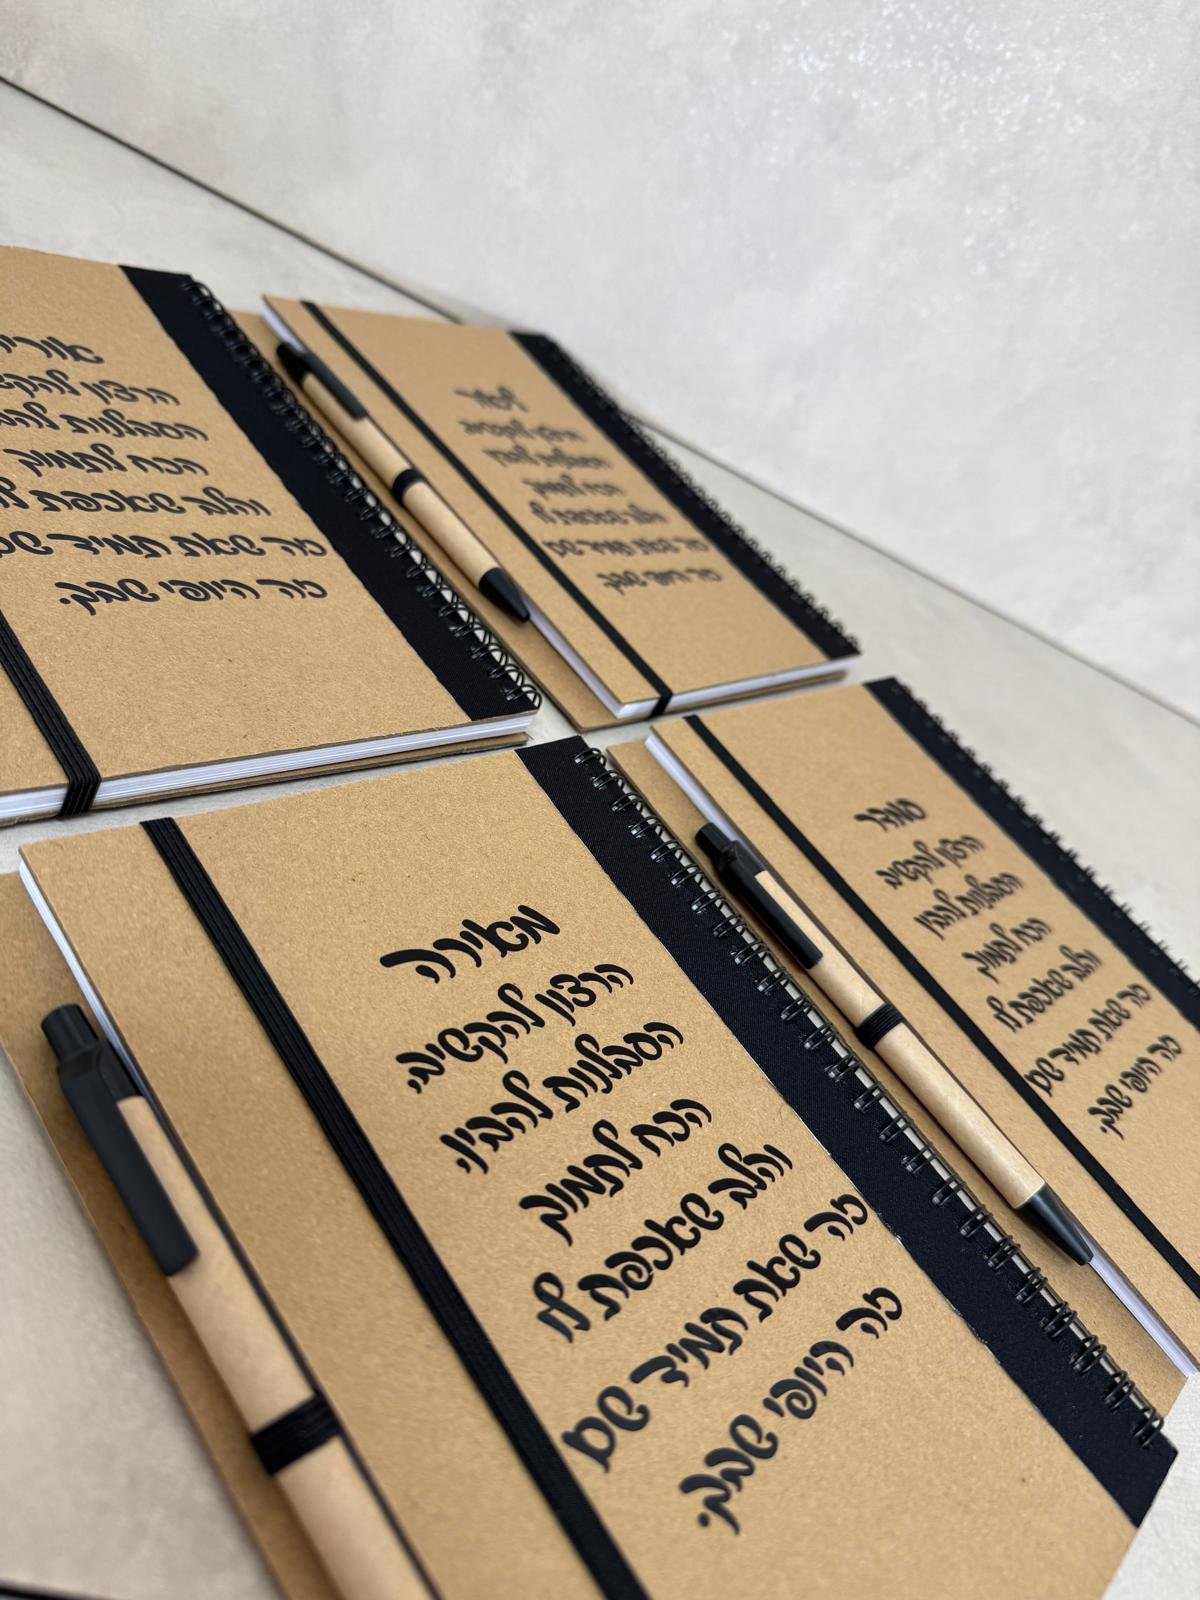 הרצון
הסבלנות
הכח לתמוך
והלב שאכפת
זה שאת תמיד
זה היופי שבך.
הרצון להקשיב,
הסבלנות להבין,
הכח לתמוך
והלב שאכפת לו
זה שאת תמיד שם
זה היופי שבך.
מאירה
הרצון להקשיב,
הסבלנות להבין,
הכח לתמוך
והלב שאכפת לו
זה שאת תמיד שם
זה היופי שבך.
סמדר
הרצון להקשיב,
הסבלנות להבין,
הכח לתמוך
והלב שאכפת לו
זה שאת תמיד שם
זה היופי שבך.